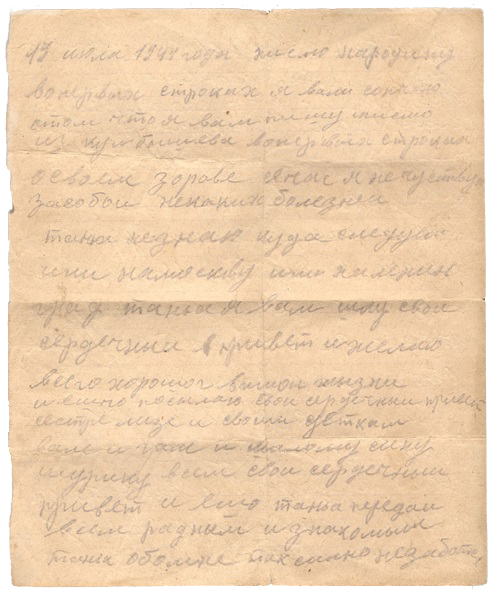 17 июля 1941 года писмо народину
вопервых строках я вам сопчаю
отом что я вам пишу писмо
из куйбышева вопервых строках
освоем здораве сичас я нечуствую
засобой некаких болезней
таня незнаю куда следуем
или намоскву или наленин
град таня я вам шлю свой
сердечный привет и желаю
всего хорошого вашой жизни
и ешчо посылаю свой сердечный привет
сестре лизе и своим деткам
вале и и милому сину
шурику всем свой сердечный
привет и ешо таня передай
всем радным и знакомым
таня обомне так силно незаботся